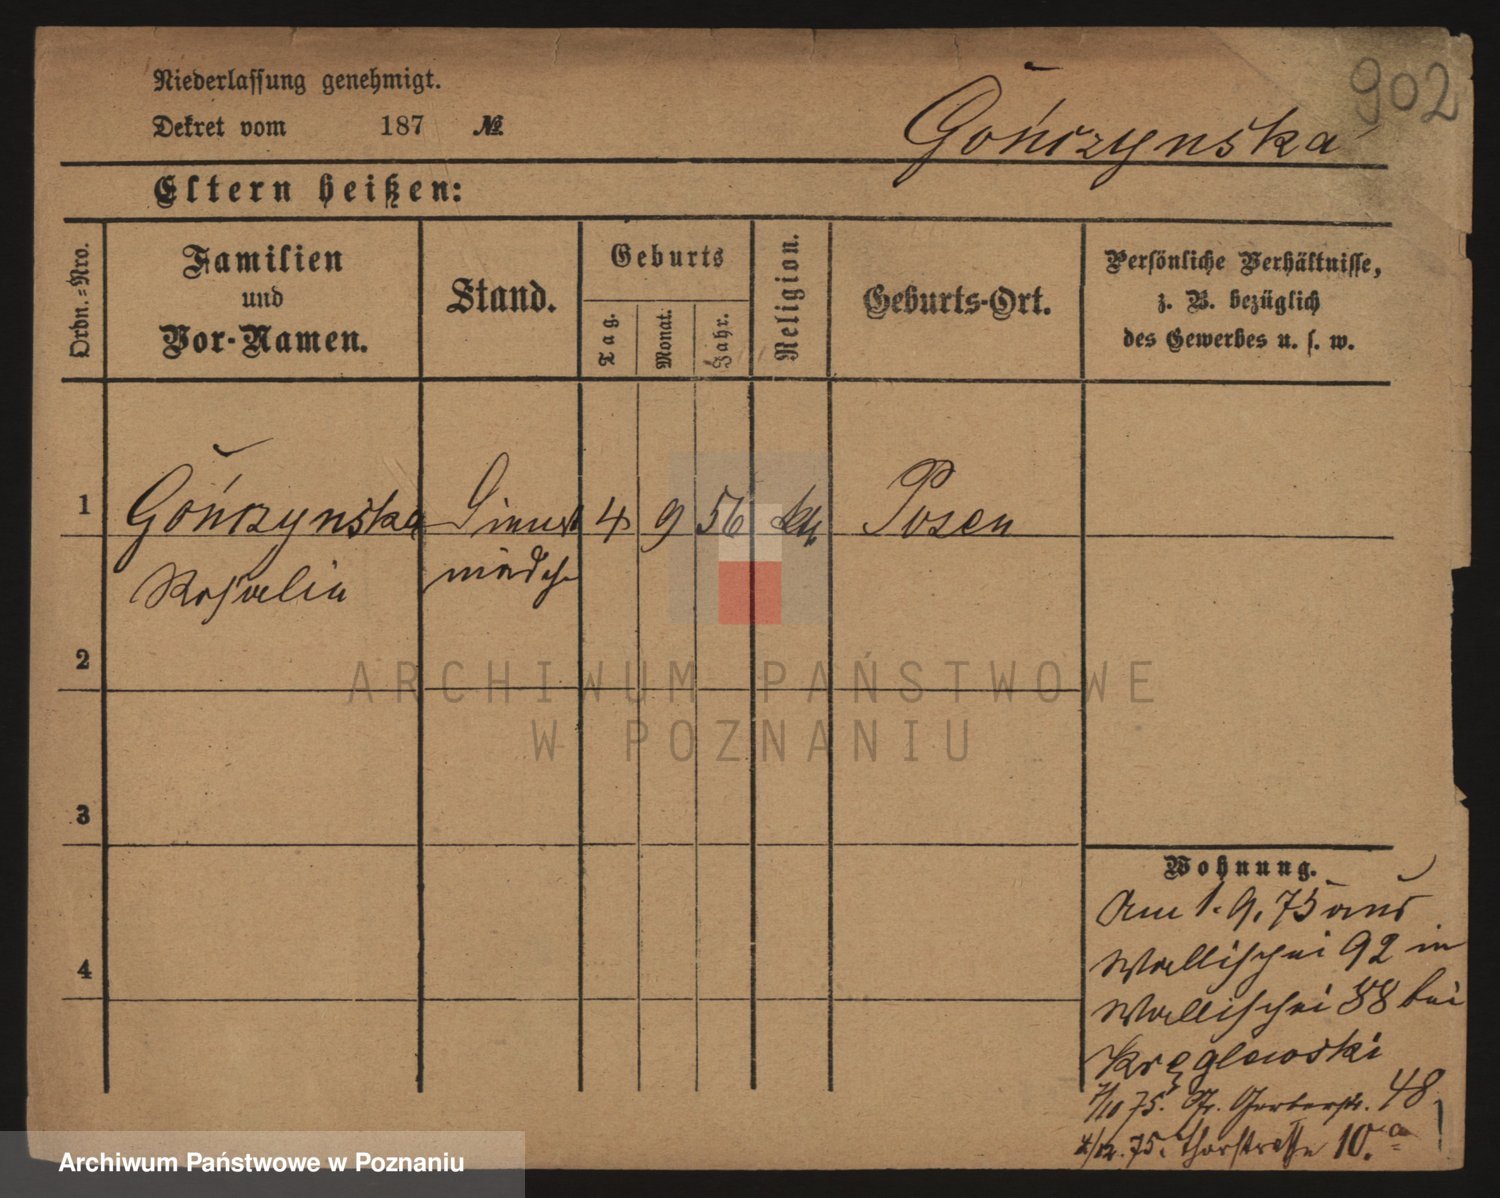 902
Niederlassung genehmigt.
Dekret vom 187 №
Gończynska
Eltern heißen:
Ordn.=Nro.
Familien
und
Vor-Namen.
Stand.
Geburts
Tag.
Monat.
Jahr.
Religion.
Geburts-Ort.
Persönliche Verhältnisse,
z. B. bezüglich
des Gewerbes u. s. w.
1 Gończynska Dienst 4 9 56 kth Posen
Rosalia mädch
2
3
4
Wohnung.
Am 1. 9. 75 aus
Wallischei 92 in
Wallischei 88 bei
Kręglewski
7/10 75. Gr. Gerberstr. 48
4/12. 75. Thorstraße 10.a
ARCHIWUM PAŃSTWOWE
W POZNANIU
Archiwum Państwowe w Poznaniu